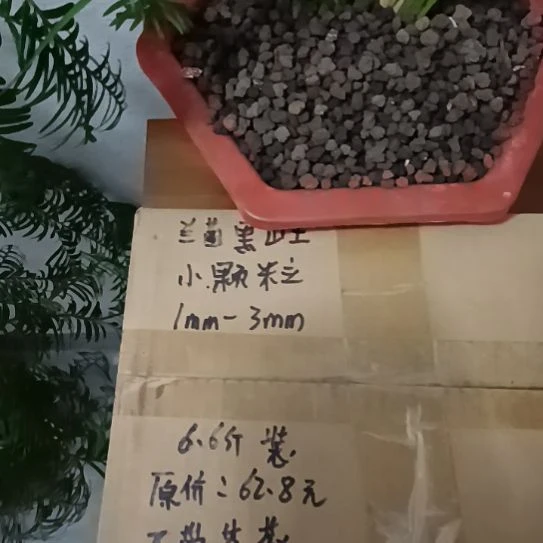 兰菌黑山土
小颗粒
1mm-3mm
6.6斤装.
原价:62.8元